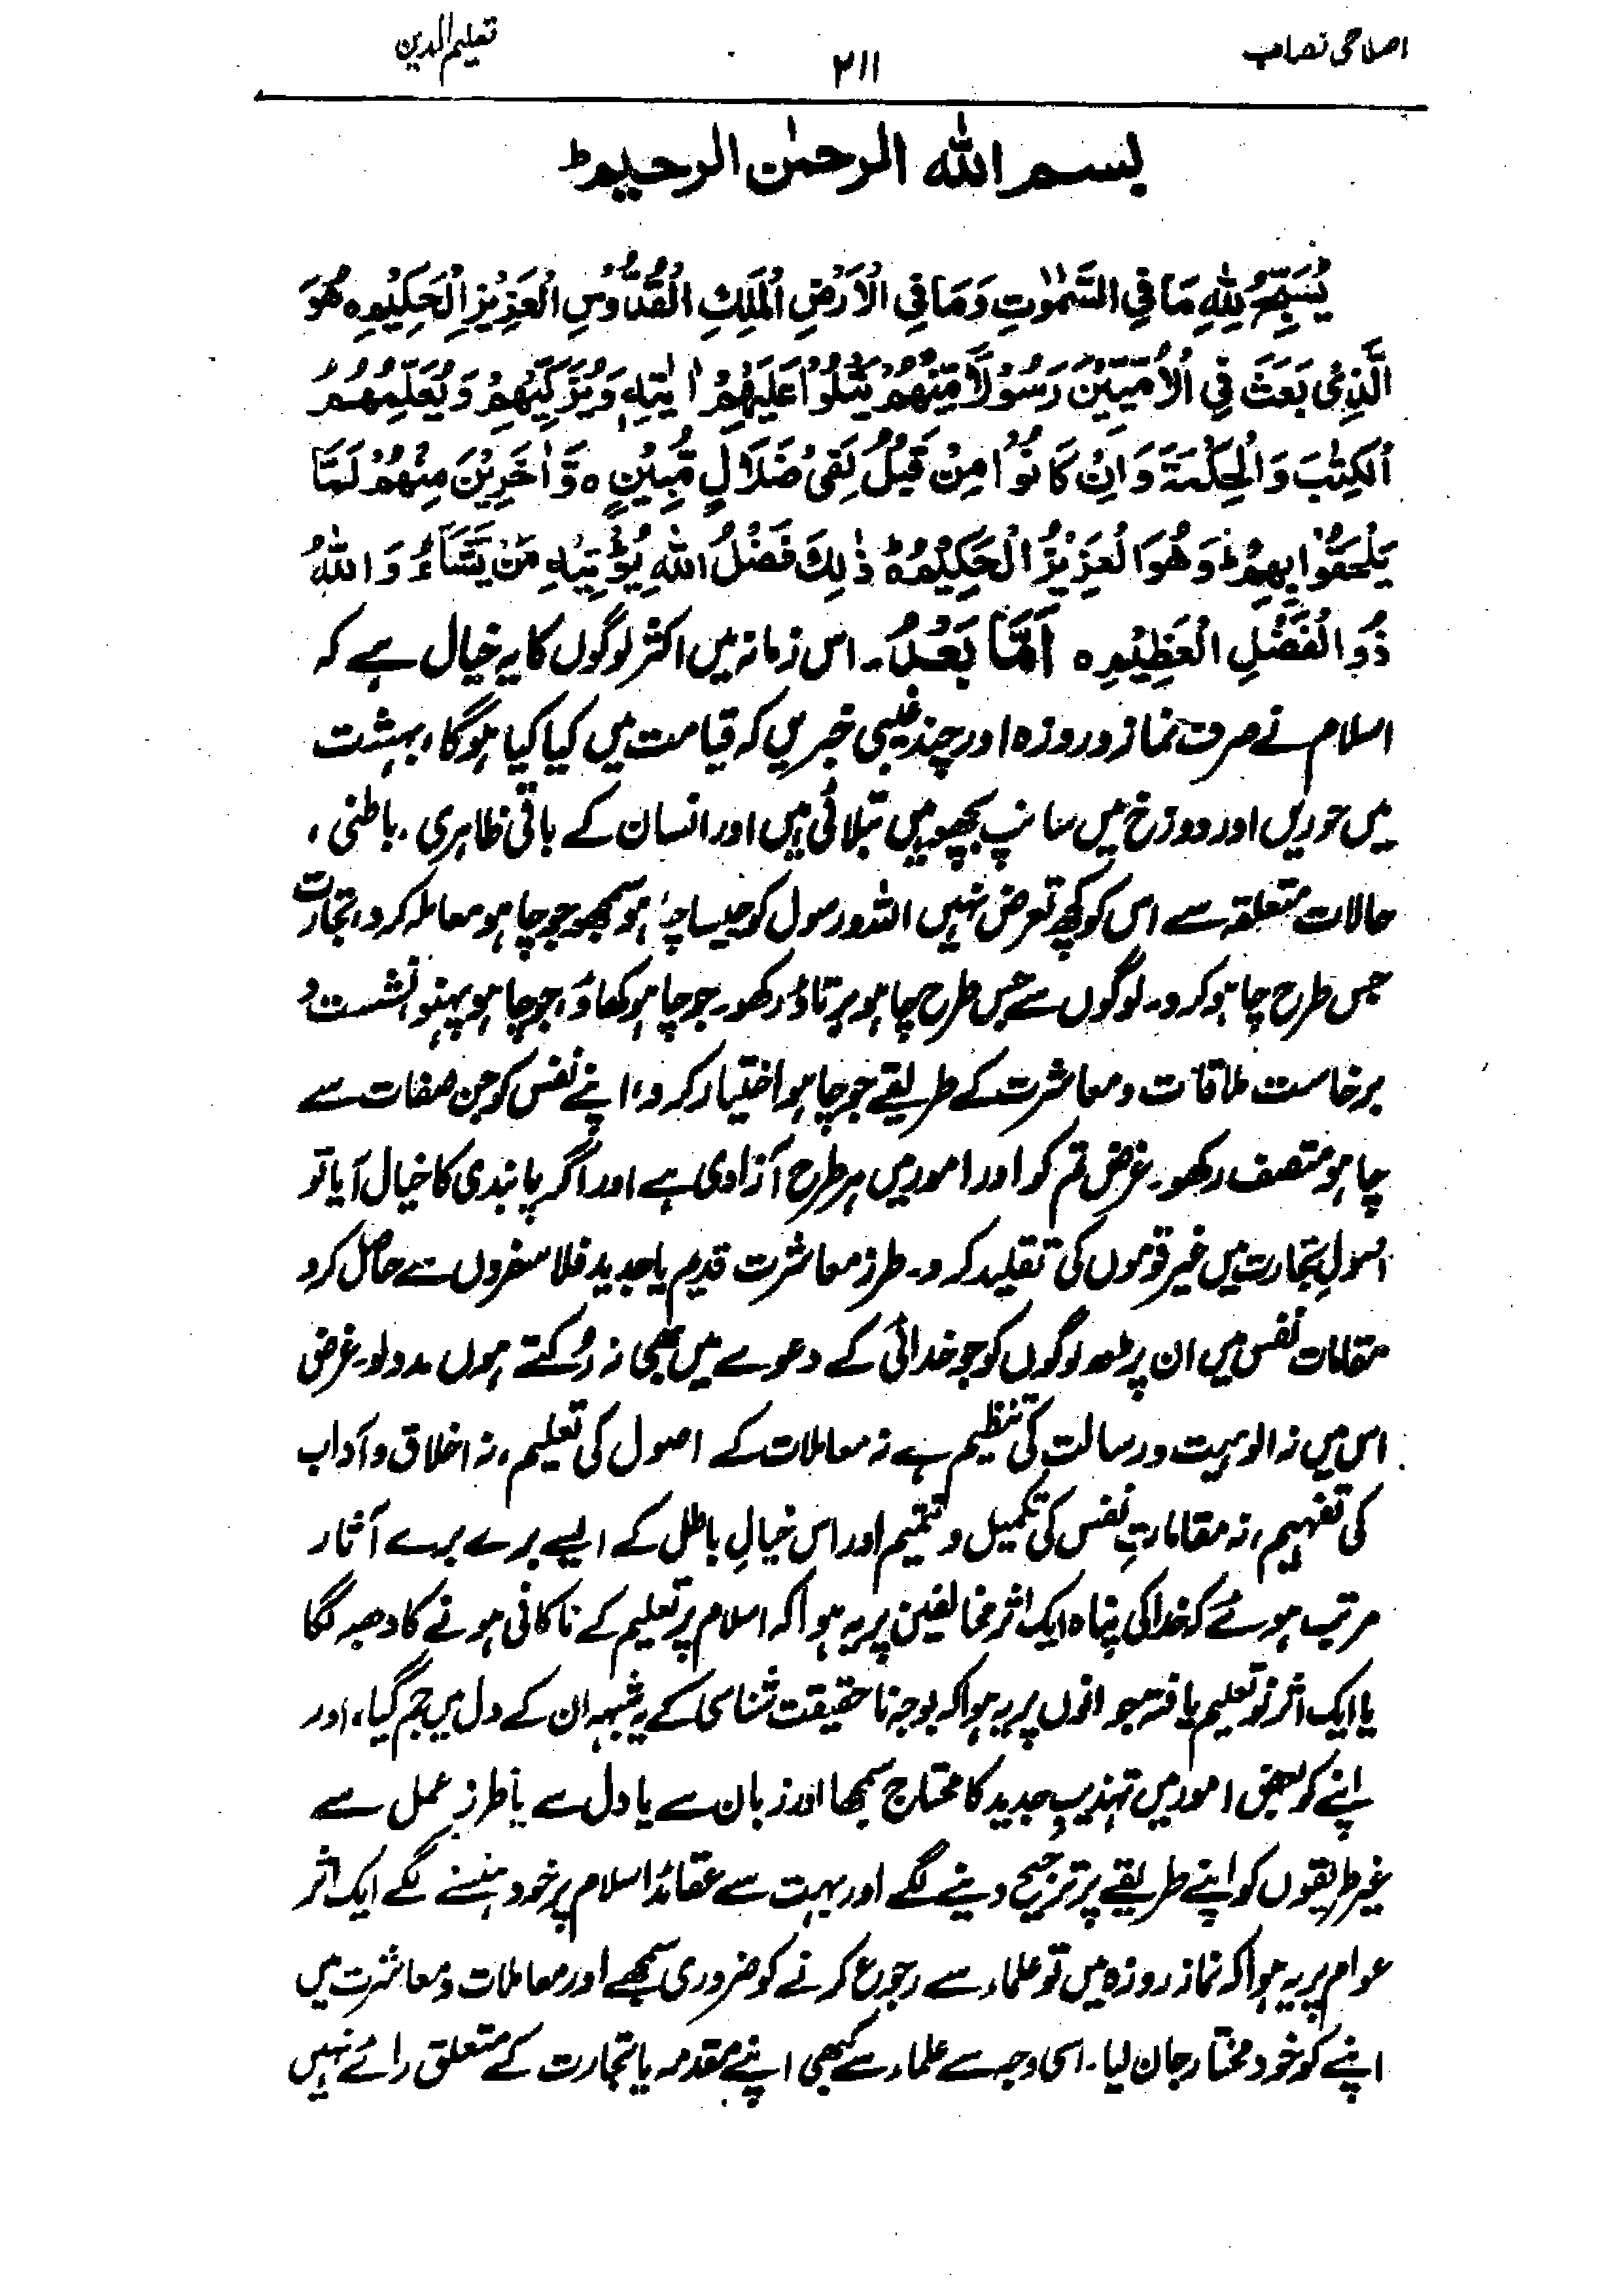 اصلاحی نصاب ۲۱۱ تعلیم الدین
بسم اللہ الرحمٰن الرحیم ؕ
یُسَبِّحُ لِلّٰہِ مَا فِی السَّمٰوٰتِ وَمَا فِی الْاَرْضِ الْمَلِکِ الْقُدُّوْسِ الْعَزِیْزِ الْحَکِیْمِ ہ ھُوَ
الَّذِیْ بَعَثَ فِی الْاُمِّیّٖنَ رَسُوْلًا مِّنْھُمْ یَتْلُوْا عَلَیْھِمْ اٰیٰتِہٖ وَیُزَکِّیْھِمْ وَیُعَلِّمُھُمُ
الْکِتٰبَ وَالْحِکْمَۃَ وَاِنْ کَانُوْا مِنْ قَبْلُ لَفِیْ ضَلَالٍ مُّبِیْنٍ ہ وَّاٰخَرِیْنَ مِنْھُمْ لَمَّا
یَلْحَقُوْا بِھِمْ ؕ وَھُوَ الْعَزِیْزُ الْحَکِیْمُ ہ ذٰلِکَ فَضْلُ اللّٰہِ یُؤْتِیْہِ مَنْ یَّشَآءُ وَاللّٰہُ
ذُو الْفَضْلِ الْعَظِیْمِ ہ اَمَّا بَعْدُ۔ اس زمانہ میں اکثر لوگوں کا یہ خیال ہے کہ
اسلام نے صرف نماز و روزہ اور چند غیبی خبریں کہ قیامت میں کیا کیا ہوگا، بہشت
میں حوریں اور دوزخ میں سانپ بچھو ہیں بتلائی ہیں اور انسان کے باقی ظاہری، باطنی،
حالات متعلقہ سے اس کو کچھ تعرض نہیں اللہ و رسول کو جیسا چاہو سمجھو جو چاہو معاملہ کرو، تجارت
جس طرح چاہو کرو۔ لوگوں سے جس طرح چاہو برتاؤ رکھو۔ جو چاہو کھاؤ، جو چاہو پہنو نشست و
برخاست ملاقات و معاشرت کے طریقے جو چاہو اختیار کرو، اپنے نفس کو جن صفات سے
چاہو متصف رکھو۔ غرض تم کو اور امور میں ہر طرح آزادی ہے اور اگر پابندی کا خیال آیا تو
اصولِ تجارت میں غیر قوموں کی تقلید کرو۔ طرز معاشرت قدیم یا جدید فلاسفروں سے حاصل کرو
مقامات نفس میں ان پڑھ لوگوں کو جو خدائی کے دعوے میں بھی نہ رُکتے ہوں مدد لو۔ غرض
اس میں نہ الوہیت و رسالت کی تنظیم ہے نہ معاملات کے اصول کی تعلیم، نہ اخلاق و آداب
کی تفہیم، نہ مقاماتِ نفس کی تکمیل و تتمیم اور اس خیالِ باطل کے ایسے برے برے آثار
مرتب ہوئے کہ خدا کی پناہ ایک اثر مخالفین پر یہ ہوا کہ اسلام پر تعلیم کے ناکافی ہونے کا دھبہ لگا
یا ایک اثر نو تعلیم یافتہ جوانوں پر یہ ہوا کہ بوجہ نا حقیقت شناسی کے یہ شبہ ان کے دل میں جم گیا، اور
اپنے کو بعض امور میں تہذیبِ جدید کا محتاج سمجھا اور زبان سے یا دل سے یا طرزِ عمل سے
غیر طریقوں کو اپنے طریقے پر ترجیح دینے لگے اور بہت سے عقائد اسلام پر خود ہنسنے لگے ایک اثر
عوام پر یہ ہوا کہ نماز روزہ میں تو علماء سے رجوع کرنے کو ضروری سمجھے اور معاملات و معاشرت میں
اپنے کو خود مختار جان لیا۔ اسی وجہ سے علماء سے کبھی اپنے مقدمہ یا تجارت کے متعلق رائے نہیں